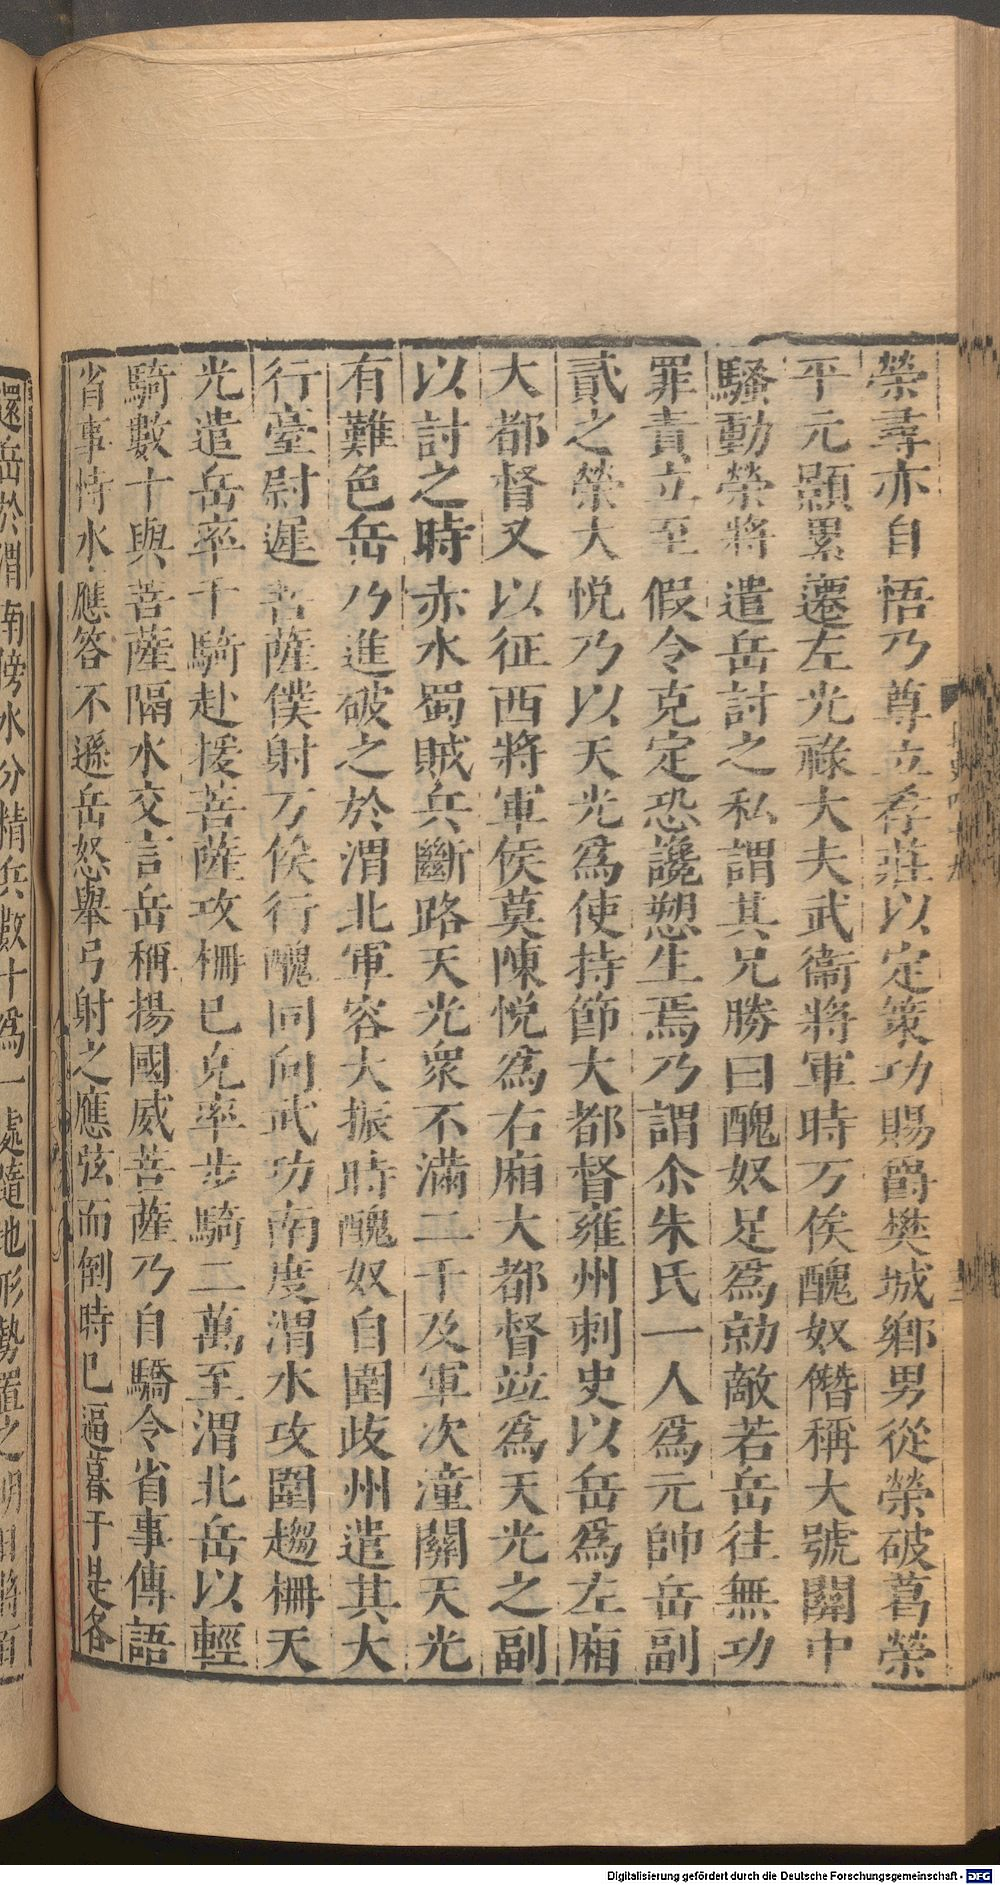 榮尋亦自悟乃尊立孝莊以定策功賜爵樊城鄉男從榮破葛榮
平元顥累遷左光祿大夫武衞將軍時万俟醜奴僭稱大號關中
騷動榮將遣岳討之私謂其兄勝曰醜奴足爲勍敵若岳往無功
罪責立至假令克定恐讒愬生焉乃謂尒朱氏一人爲元帥岳副
貳之榮大悅乃以天光爲使持節大都督雍州刺史以岳爲左廂
大都督又以征西將軍侯莫陳悅爲右廂大都督竝爲天光之副
以討之時赤水蜀賊兵斷路天光衆不滿二千及軍次潼關天光
有難色岳乃進破之於渭北軍容大振時醜奴自圍歧州遣其大
行臺尉遲菩薩僕射万俟行醜同向武功南度渭水攻圍趨柵天
光遣岳率千騎赴援菩薩攻柵已克率步騎二萬至渭北岳以輕
騎數十與菩薩隔水交言岳稱揚國威菩薩乃自驕令省事傳語
省事恃水應答不遜岳怒舉弓射之應弦而倒時已逼暮于是各
還岳於渭南傍水分精兵數十爲一處隨地形勢置之明日將百
Digitalisierung gefördert durch die Deutsche Forschungsgemeinschaft - DFG